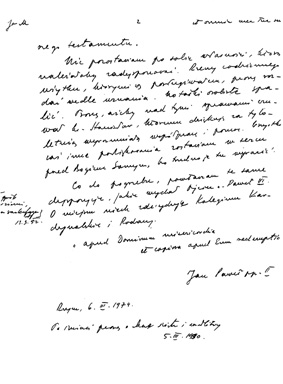 Jan M.
2
nego testamentu.
Nie pozostawiam po sobie własności, którą
należałoby zadysponować. Rzeczy codziennego
użytku, którymi się posługiwałem, proszę roz-
dać wedle uznania. Notatki osobiste spa-
lić. Proszę, ażeby nad tymi sprawami czu-
wał ks. Stanisław, któremu dziękuję za tylo-
letnią wyrozumiałą współpracę i pomoc. Wszystkie
zaś inne podziękowania zostawiam w sercu
przed Bogiem Samym, bo trudno je wyrazić.
Co do pogrzebu, powtarzam te same
dyspozycje, jakie wydał Ojciec Św. Paweł VI.
O miejscu niech zdecyduje Kolegium Kar-
dynalskie i Rodacy.
apud Dominum misericordia
et copiosa apud Eum redemptio
Jan Paweł pp. II
Rzym, 6.III.1979.
Po śmierci proszę o Msze Święte i modlitwy
5.III.1990.